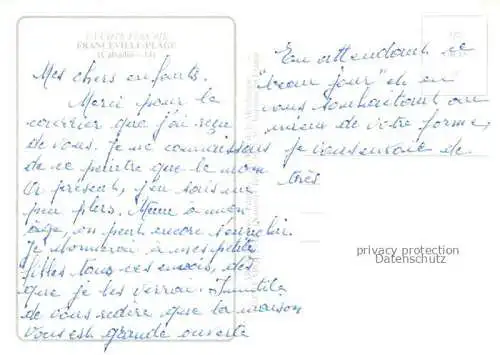 LA CÔTE FLEURIE
FRANCEVILLE-PLAGE
(Calvados - 14)
Mes chers enfants.
Merci pour le
courrier que j'ai reçu
de vous. Je ne connaissais
de ce peintre que le nom
Or présent, j'en sais un
peu plus. Même à mon
âge, on peut encore s'enrichir.
Je donnerai à mes petites
filles tous ces envois, dès
que je les verrai. Inutile
de vous redire que la maison
vous est grande ouverte
En attendant ce
"beau jour" et en
vous souhaitant au
mieux de votre forme,
je vous envoie de
très
privacy protection
Datenschutz